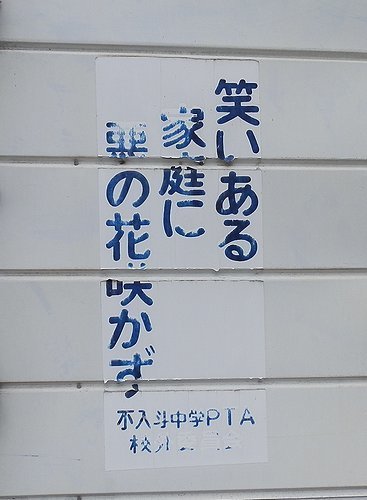 笑いある
家庭に
悪の花咲かず
不入斗中学PTA
校外